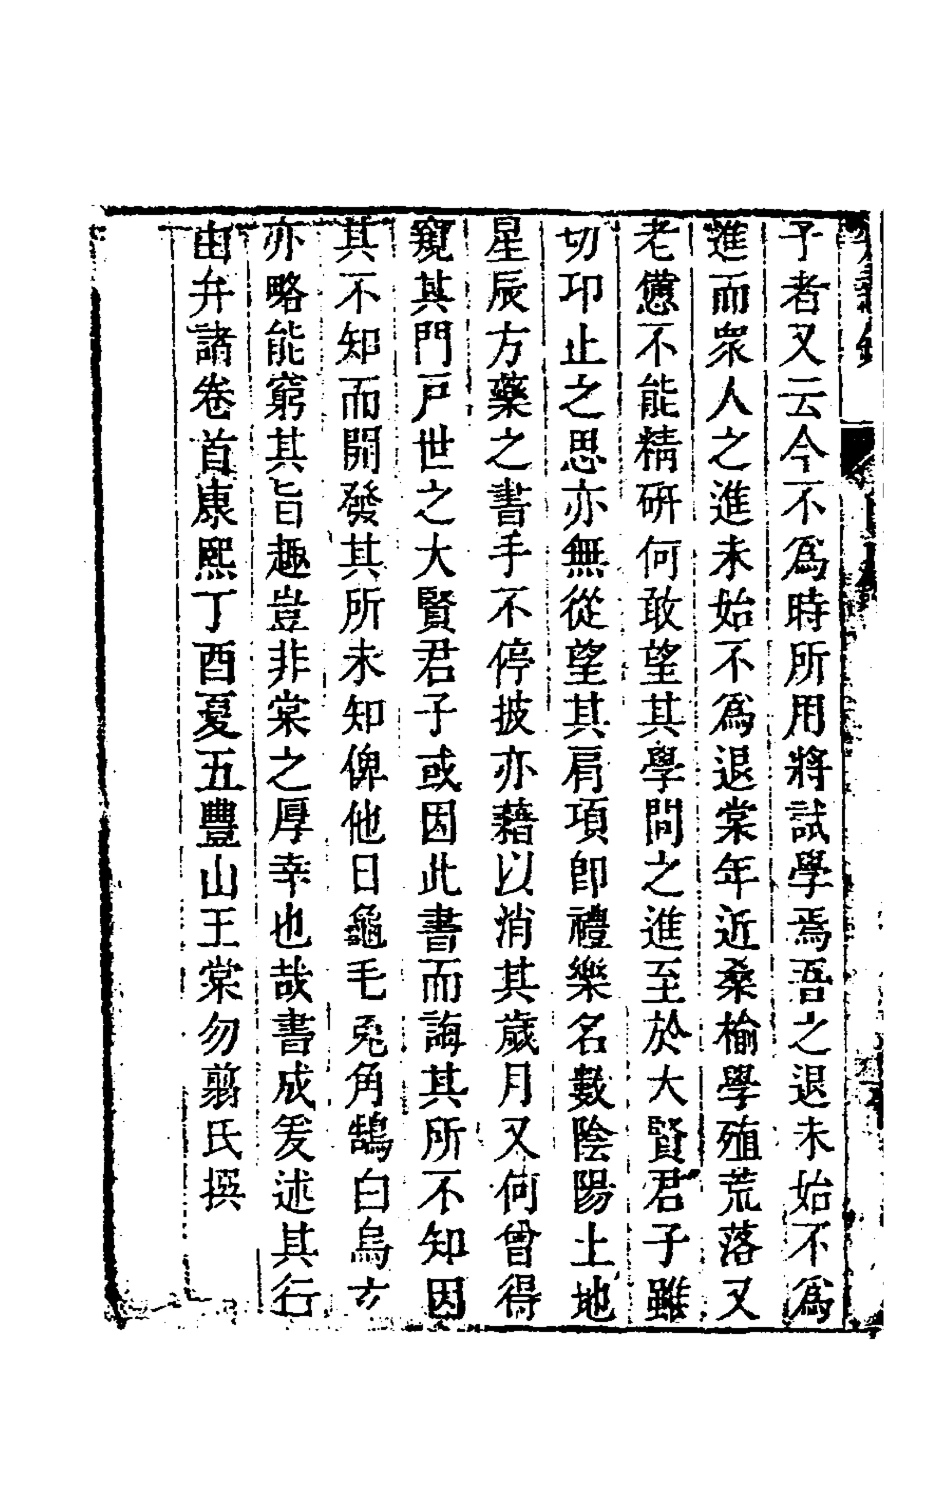 子者又云今不爲時所用將試學焉吾之退未始不爲
進而衆人之進未始不爲退棠年近桑榆學殖荒落又
老憊不能精研何敢望其學問之進至於大賢君子雖
切卬止之思亦無從望其肩項卽禮樂名數陰陽土地
星辰方藥之書手不停披亦藉以消其歲月又何曾得
窺其門戸世之大賢君子或因此書而誨其所不知因
其不知而開發其所未知俾他日龜毛兎角鵠白烏玄
亦略能窮其旨趣豈非棠之厚幸也哉書成爰述其行
由弁諸卷首康熙丁酉夏五豐山王棠勿翦氏撰